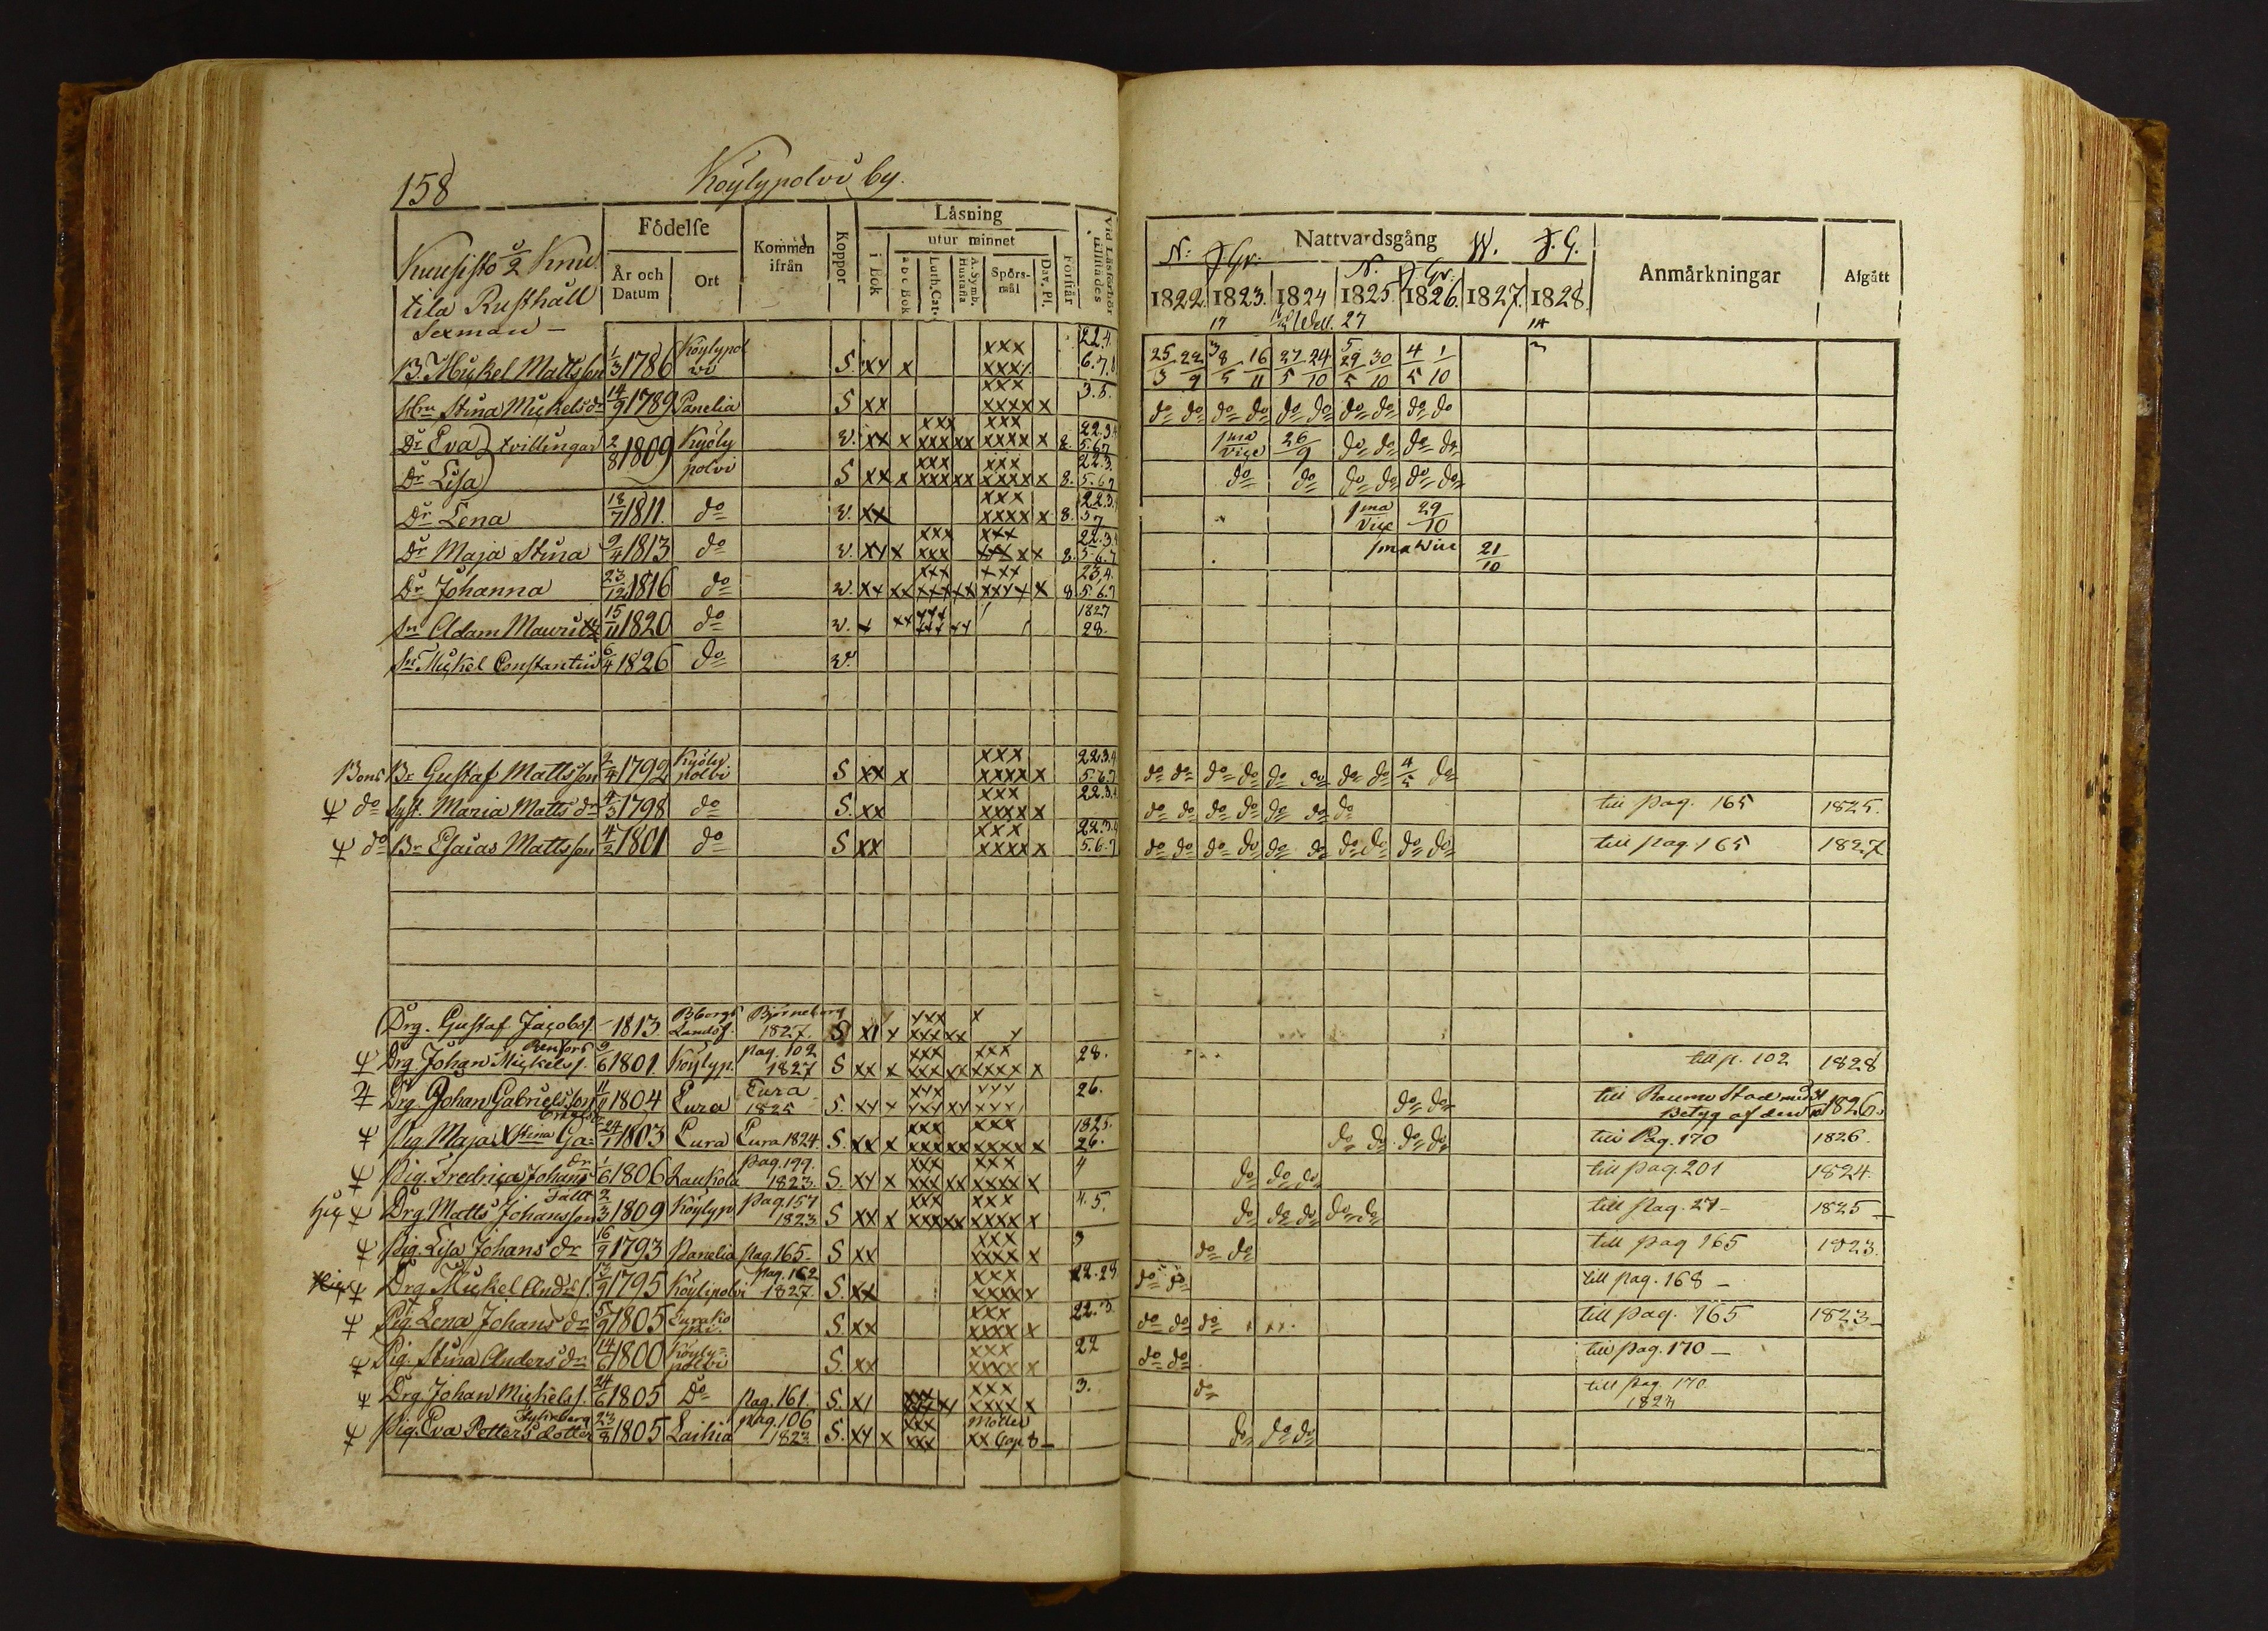 158 Köylypolvi by.
Kuusisto 1/2 Knu
tila Rusthåll
Sexman —
Födelse
År och Datum Ort
Kommen ifrån
Koppor
Läsning
i Bok
utur minnet
a b c Bok
Luth. Cat.
A. Symb. Hustafla
Spörs-mål
Dav. Pl.
Förstår
Vid Läsförhör tillstädes
N: J Gr: Nattvardsgång W. J. G.
N. J Gr:
1822. 1823. 1824 1825. 1826. 1827. 1828.
Anmärkningar Afgått
B. Mickel Mattsson 1/3 1786 Köylypolvi S xx x xxx xxxx 22.4. 6.7.8 25/3 22/9 8/5 16/11 27/5 24/10 29/5 30/10 4/5 1/10
Hru Stina Mickelsdr 14/9 1789 Panelia S xx xxx xxxx x 3.8. do do do do do do do do do do
Dr Eva } tvillingar 2/8 1809 Kyölypolvi v. xx x xxx xxx xx xxx xxxx x 8. 22.3.4 5.6.7 1ma vice 26/9 do do do do
Dr Lisa S xx x xxx xxx xx xxx xxxx x 8. 22.3. 5.6.7 do do do do do do
Dr Lena 18/7 1811. do v. xx xxx xxxx x 8. 22.3.4 5.7 1ma vice 29/10
Dr Maja Stina 9/4 1813 do v. xx x xxx xxx xxx xxx xx 8. 22.3.4 5.6.7 1ma vice 21/10
Dr Johanna 23/12 1816 do v. xx xx xxx xxx xx xxx xxxx x 8 23.4. 5.6.7
Sn Adam Mauritz 15/11 1820 do v. x xx xxx xxx xx 1827 28.
Sn Mickel Constantin 6/4 1826 do v.
Bond Br Gustaf Mattsson 2/4 1792 Kyölypolvi S xx x xxx xxxx x 22.3.4 5.6.7 do do do do do do do do 4/5 do
do Syst. Maria Matts dr 4/3 1798 do S. xx xxx xxxx x 22.3.4 do do do do do do do till pag. 165 1825.
do Br Esaias Mattsson 4/2 1801 do S xx xxx xxxx x 22.3.4 5.6.7 do do do do do do do do do do till pag. 165 1827
Drg. Gustaf Jacobss. 1813 Bborgs Landsf. Björneborg 1827. S x1 x xxx xxx xx x x
Renfors
Drg Johan Mickelss. 9/6 1801. Köylyp. pag. 102 1827 S xx x xxx xxx xx xxx xxxx x 28. till p. 102 1828
Drg. Johan Gabrielsson 11/11 1804 Eura Eura 1825 S. xx x xxx xxx xx xxx xxx 26. do do till Raumo Stad med Betyg af den 31/10 1826.
Pig Maja Stina Ga= 24/1 1803 Eura Eura 1824 S. xx x xxx xxx xx xxx xxxx x 1825. 26. do do do do till Pag. 170 1826.
Pig. Fredrica Johans dr 1/6 1806 Laukola pag. 199. 1823. S. xx x xxx xxx xx xxx xxxx x 4 do do do till pag. 201 1824.
Drg. Matts Johansson 2/3 1809 Köylyp pag. 157 1823 S xx x xxx xxx xx xxx xxxx x 4.5. do do do do do till pag. 27 — 1825 —
Pig. Lisa Johans dr 16/9 1793 Panelia pag. 165. S xx xxx xxxx x 3 do do till pag 165 1823.
Drg Mickel Andrs. 13/9 1795 Köylipolvi pag. 162 1827. S. xx xxx xxxx x 22.28 do do till pag. 168 —
Pig. Lena Johans dr 5/9 1805 Eurakio S. xx xxx xxxx x 22.3. do do do till pag. 165 1823 —
Pig. Stina Anders dr 14/6 1800 Köyly=polvi S. xx xxx xxxx x 22 do do till pag. 170 —
Drg. Johan Mickelss. 24/6 1805 Do pag. 161. S. x1 xxx xxx x1 xxx xxxx x 3. do till pag. 170 1823
Pig. Eva Petters dotter 23/8 1805 Laihia pag. 106 1823 S. xx x xxx xxx xx Cap 8 — do do do